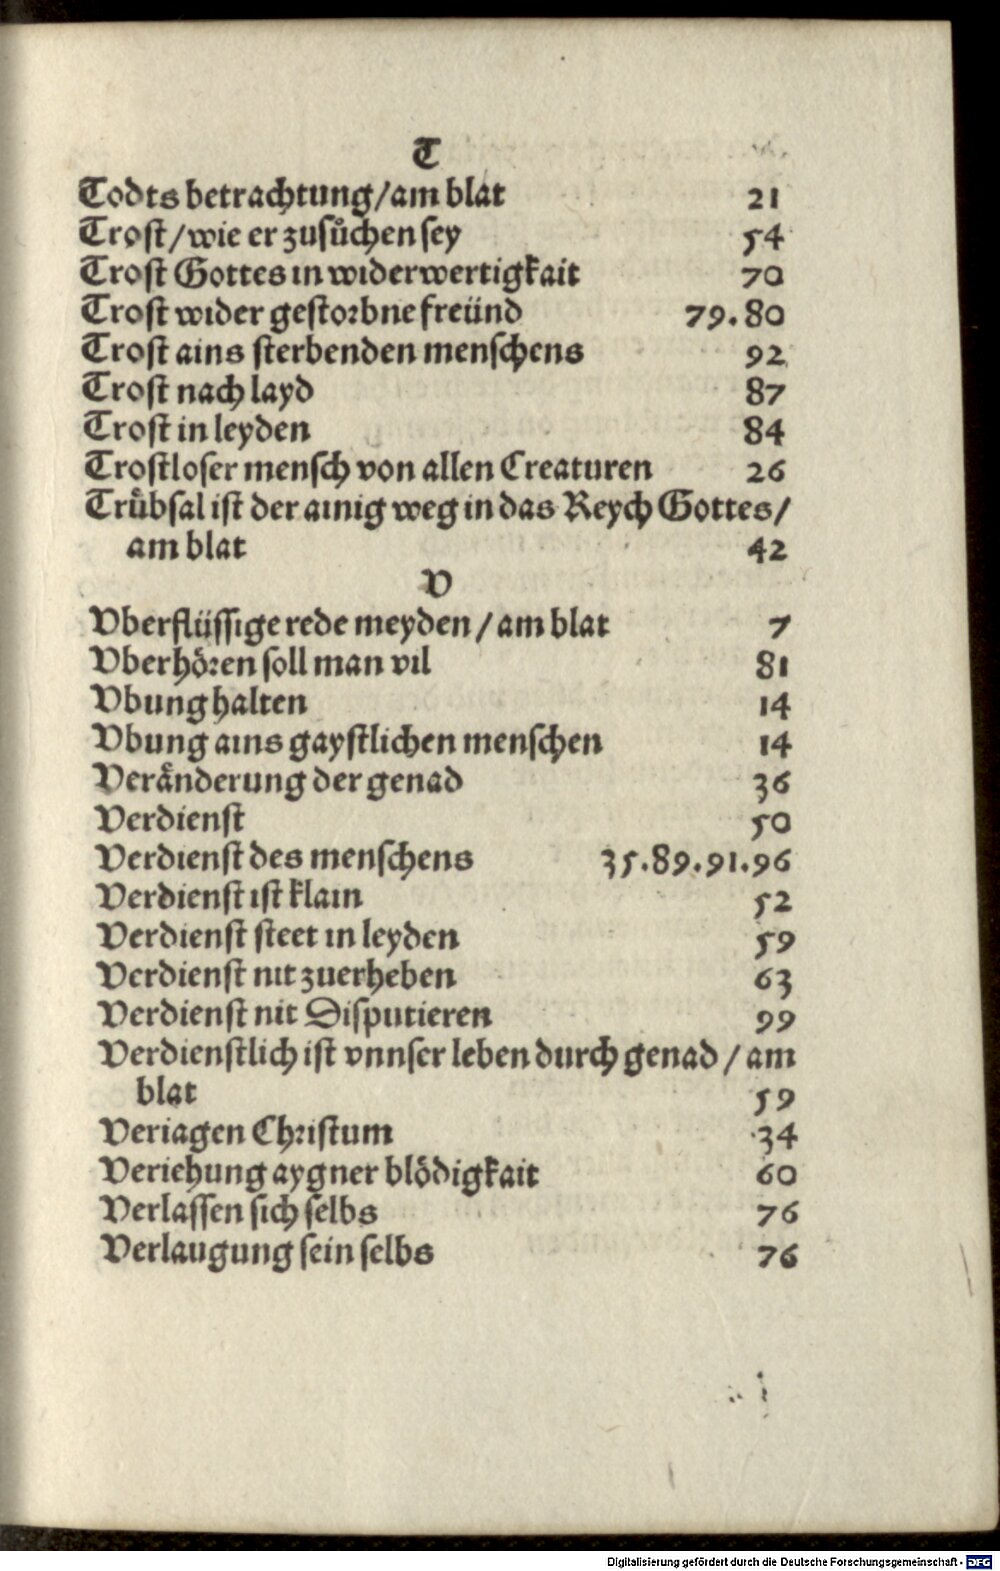 T
Todts betrachtung/am blat 21
Trost/wie er zusůchen sey 54
Trost Gottes in widerwertigkait 70
Trost wider gestorbne freünd 79.80
Trost ains sterbenden menschens 92
Trost nach layd 87
Trost in leyden 84
Trostloser mensch von allen Creaturen 26
Trübsal ist der ainig weg in das Reych Gottes/
am blat 42
V
Vberflüssige rede meyden/am blat 7
Vberhören soll man vil 81
Vbung halten 14
Vbung ains gaystlichen menschen 14
Veränderung der genad 36
Verdienst 50
Verdienst des menschens 35.89.91.96
Verdienst ist klain 52
Verdienst steet in leyden 59
Verdienst nit zuerheben 63
Verdienst nit Disputieren 99
Verdienstlich ist vnnser leben durch genad/am
blat 59
Veriagen Christum 34
Veriehung aygner blödigkait 60
Verlassen sich selbs 76
Verlaugung sein selbs 76
Digitalisierung gefördert durch die Deutsche Forschungsgemeinschaft - DFG